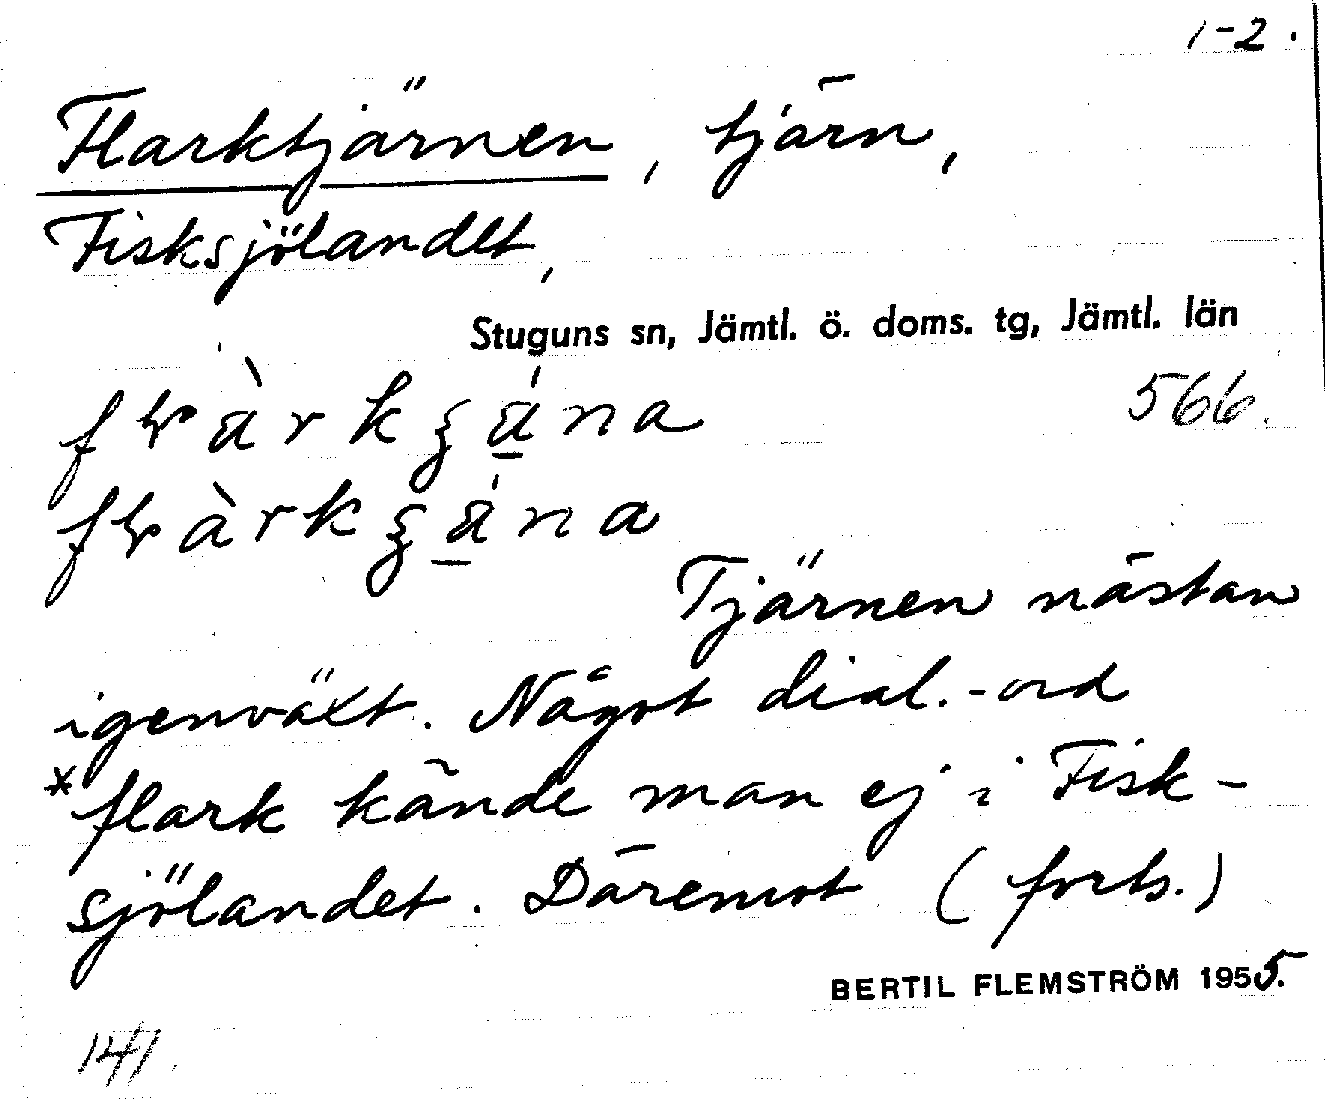 1-2.
Flarktjärnen, tjärn,
Fisksjölandet,
Stuguns sn, Jämtl. ö. doms. tg, Jämtl. län
566.
Tjärnen nästan
igenväxt. Något dial.-ord
*flark kände man ej i Fisk-
sjölandet. Däremot (forts.)
BERTIL FLEMSTRÖM 1955.
141.